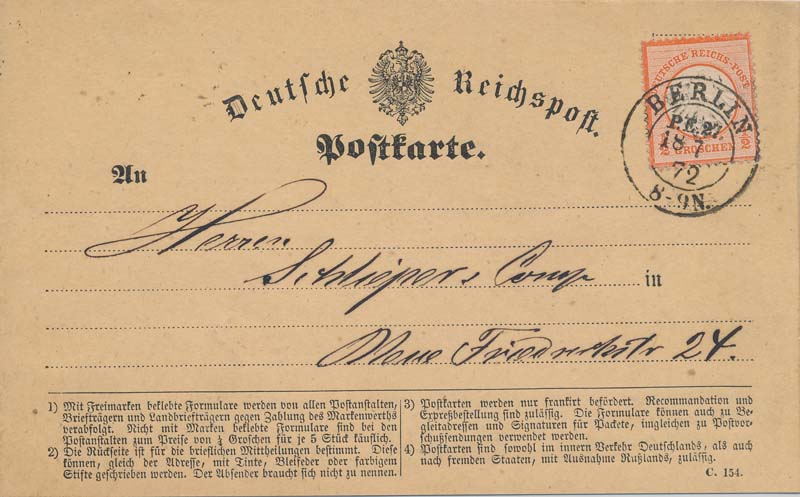 Deutsche Reichspost.
Postkarte.
DEUTSCHE REICHS-POST
GROSCHEN
BERLIN
P.E.27.
18 7
72
8-9N.
An
Herren
Schlieper & Comp
in
Neue Friedrichstr 24.
1) Mit Freimarken beklebte Formulare werden von allen Postanstalten,
Briefträgern und Landbriefträgern gegen Zahlung des Markenwerths
verabfolgt. Nicht mit Marken beklebte Formulare sind bei den
Postanstalten zum Preise von ¼ Groschen für je 5 Stück käuflich.
2) Die Rückseite ist für die brieflichen Mittheilungen bestimmt. Diese
können, gleich der Adresse, mit Tinte, Bleifeder oder farbigem
Stifte geschrieben werden. Der Absender braucht sich nicht zu nennen.
3) Postkarten werden nur frankirt befördert. Recommandation und
Expreßbestellung sind zulässig. Die Formulare können auch zu Be-
gleitadressen und Signaturen für Packete, ingleichen zu Postvor-
schußsendungen verwendet werden.
4) Postkarten sind sowohl im innern Verkehr Deutschlands, als auch
nach fremden Staaten, mit Ausnahme Rußlands, zulässig.
C. 154.